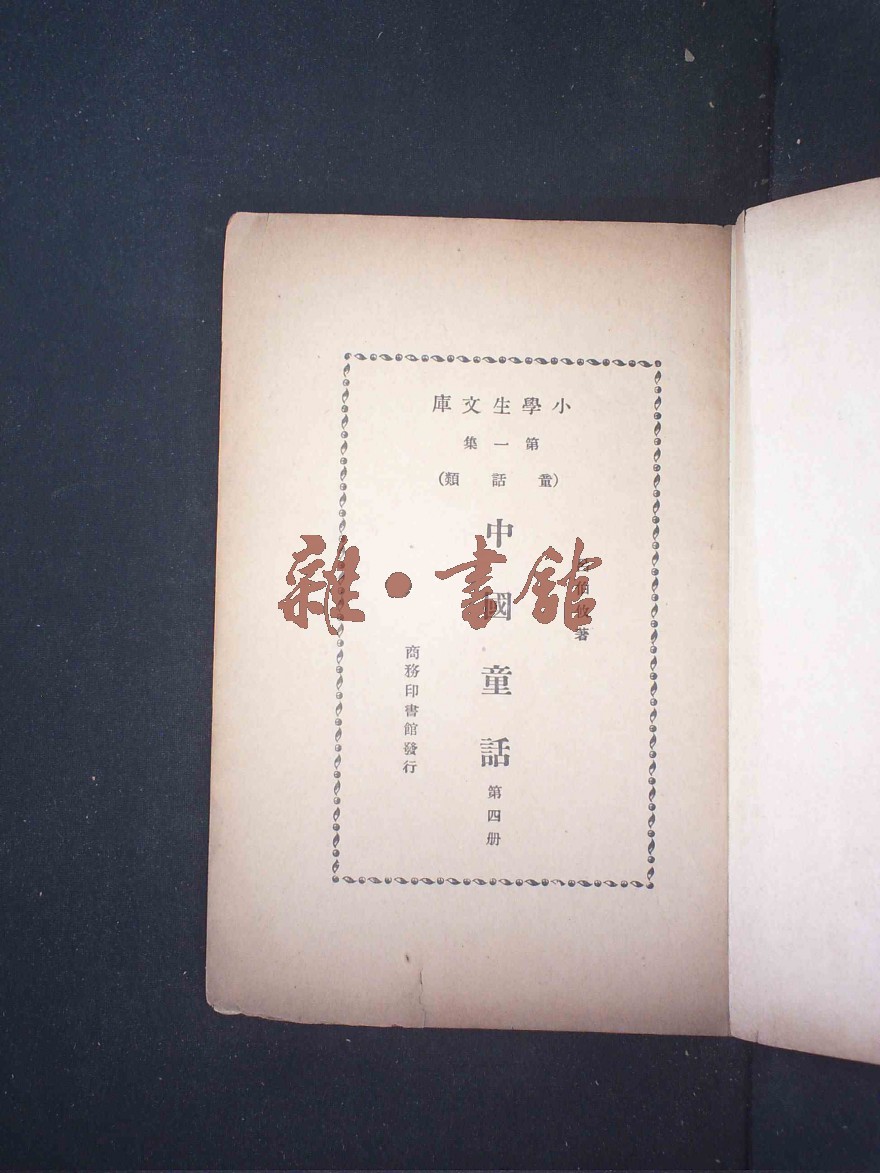 小學生文庫
第一集
(童話類)
伯攸著
中國童話
第四册
商務印書館發行
雜·書館